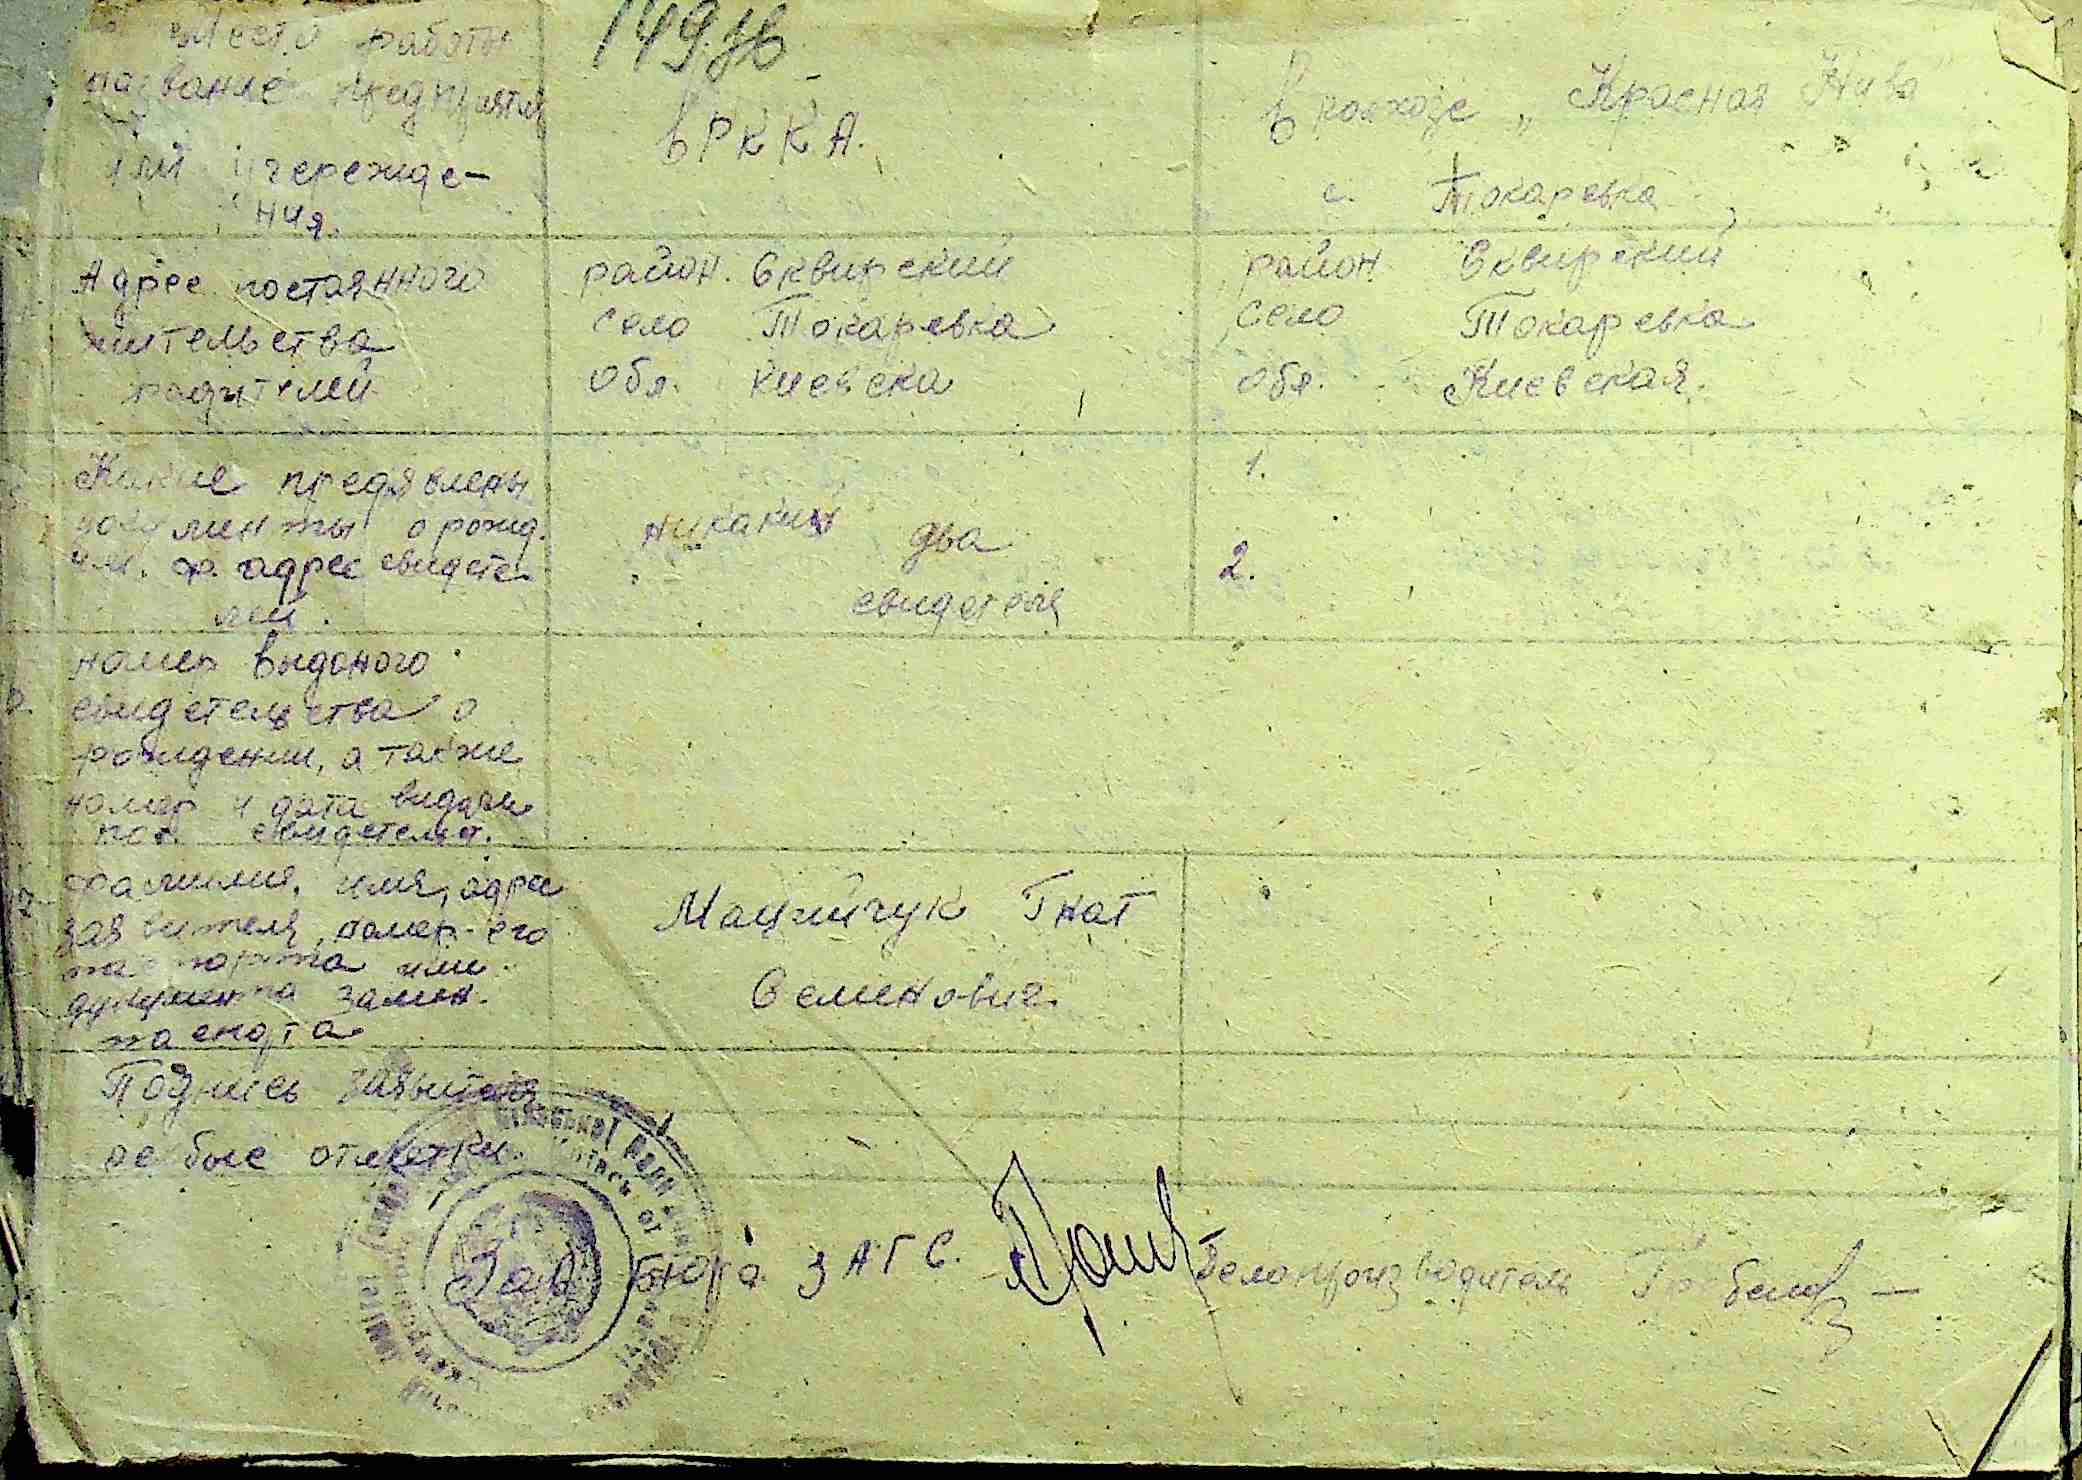 149 зв
место работы
название предприятия
или учережде-
ния.
в Р К К А.
В колхозе „Красная Нива"
с. Токаревка
Адрес постоянного
жительства
родителей
район. Сквирский
село Токаревка
обл. киевска
район Сквирский
село Токаревка
обл. Киевская.
Какие предявлены
документы о рожд.
им. ф. адрес свидете-
лей.
никаких два
свидетеля
1.
2.
номер выданого
свидетельства о
рождении, а также
номер и дата видачи
свидетельст.
фамилия, имя, адрес
заявителя, номер его
паспорта или
документа замен.
паспорта
Мацийчук Гнат
Семенович.
Подпись заявителя
особые отметки.
Зав бюро З А Г С.
Делопроизводитель